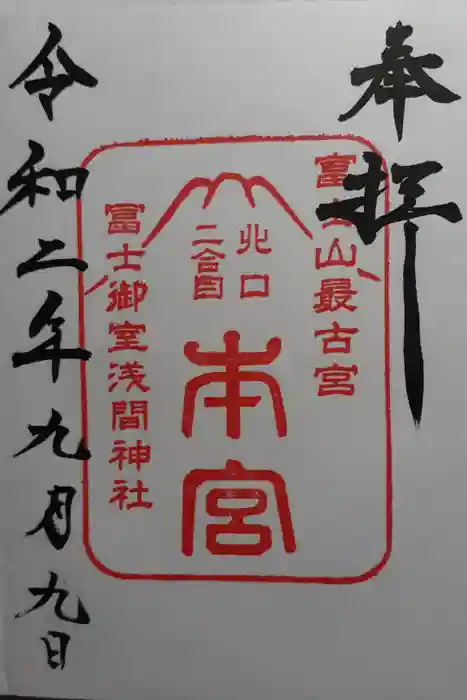 奉拝
富士山最古宮
北口
二合目
本宮
冨士御室浅間神社
令和二年九月九日